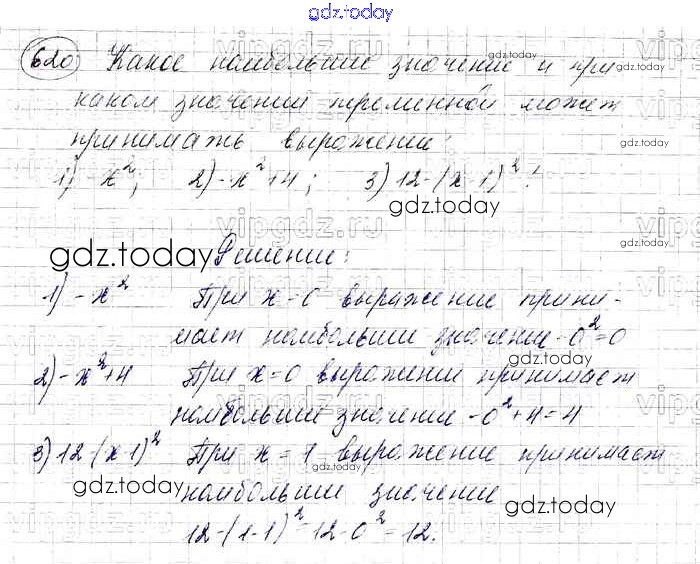 gdz.today
620 Какое наибольшее значение и при
каком значении переменной может
принимать выражение:
1) -x²; 2) -x²+4; 3) 12-(x-1)²?
gdz.today
gdz.today Решение:
1) -x² При x=0 выражение прини-
мает наибольшее значение -0²=0
gdz.today
2) -x²+4 При x=0 выражение принимает
наибольшее значение -0²+4=4
3) 12-(x-1)² При x=1 выражение принимает
gdz.today наибольшее значение gdz.today
12-(1-1)²=12-0²=12.